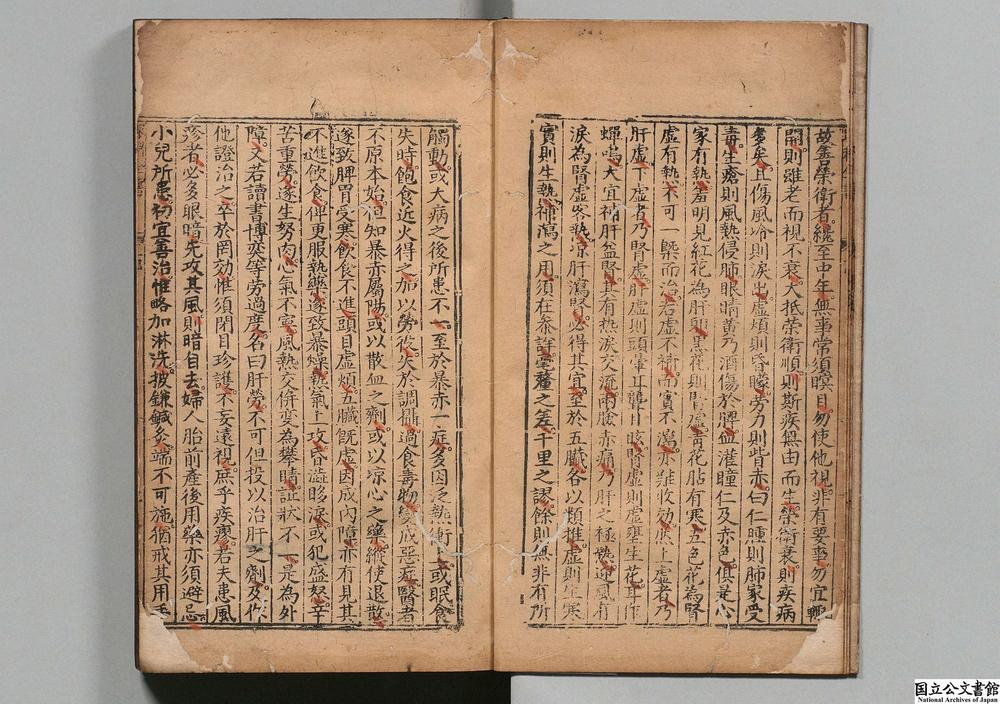 故善榮衛者纔至中年無事常須瞑目勿使他視非有要事勿宜輙
開則雖老而視不衰大抵榮衛順則斯疾無由而生榮衛衰則疾病
多矣且傷風冷則淚出虛煩則昏矇勞力則眥赤白仁腫則肺家受
毒生瘡則風熱侵肺眼睛黃乃酒傷於脾血灌瞳仁及赤色俱是心
家有熱羞明見紅花為肝邪黑花則腎虛青花胎有寒五色花為腎
虛有熱不可一槩而治若虛不補而實不瀉亦難收効然上虛者乃
肝虛下虛者乃腎虛肝虛則頭暈耳聾目眩腎虛則虛壅生花耳作
蟬鳴大宜補肝益腎其有熱淚交流兩瞼赤痛乃肝之極熱迎風有
淚為腎虛客熱凉肝瀉腎必得其宜至於五臟各以類推虛則生寒
實則生熱補瀉之用須在參詳毫釐之差千里之謬餘則無非有所
觸動或大病之後所患不一至於暴赤一症多因泛熱衝上或眠食
失時飽食近火得之加以勞役失於調攝過食毒物變成惡疾醫者
不原本始但知暴赤屬陽或以散血之劑或以凉心之藥縱使退散
遂致脾胃受寒飲食不進頭目虛煩五臟旣虛因成內障亦有見其
不進飲食俾更服熱藥遂致暴燥熱氣上攻昏澁眵淚或犯盛怒辛
苦重勞遂生努肉心氣不寧風熱交併變為攀睛証狀不一是為外
障又若讀書博奕等勞過度名曰肝勞不可但投以治肝之劑及作
他證治之卒於罔効惟須閉目珍護不妄遠視庶乎疾瘳若夫患風
疹者必多眼暗先攻其風則暗自去婦人胎前產後用藥亦須避忌
小兒所患初宜善治惟略加淋洗披鎌鍼灸端不可施猶戒其用手
国立公文書館
National Archives of Japan